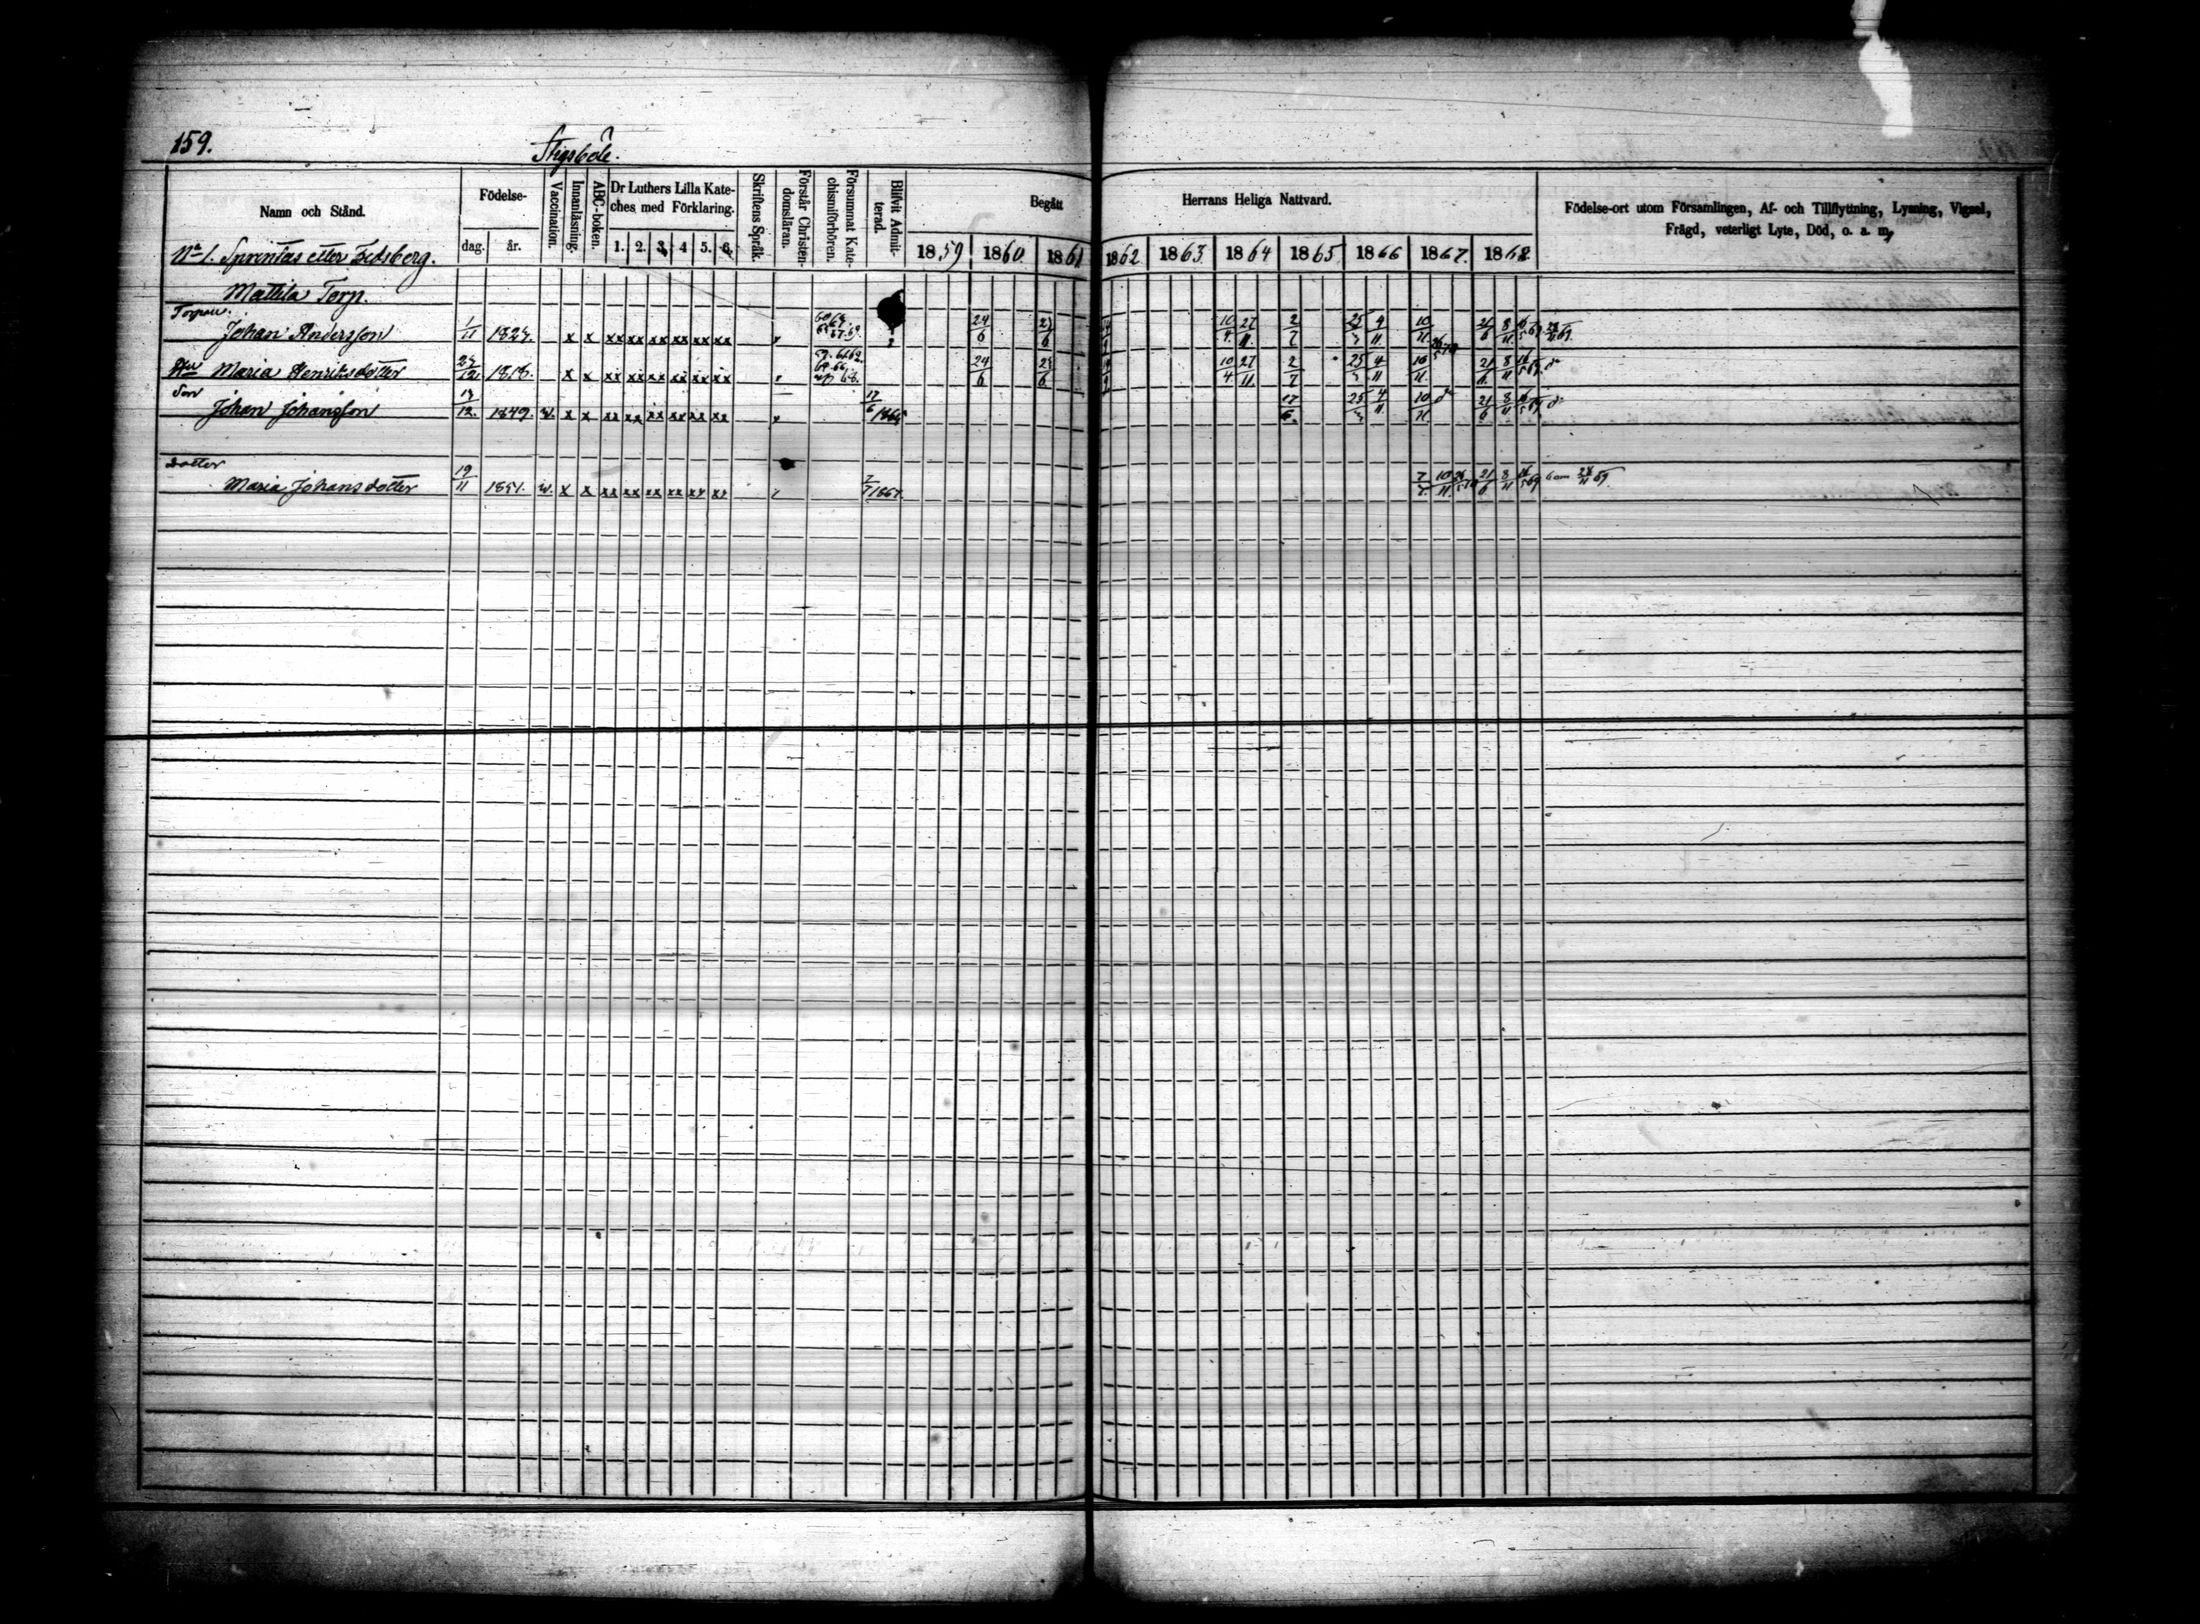 159.
Stigsböle.
Namn och Stånd.
Födelse-
dag.
år.
Vaccination.
Innanläsning.
ABC-boken.
Dr Luthers Lilla Kate-
ches med Förklaring.
1. 2. 3. 4 5. 6.
Skriftens Språk.
Förstår Christen-
domsläran.
Försummat Kate-
chismiförhören.
Blifvit Admit-
terad.
Begått
Herrans Heliga Nattvard.
1859 1860 1861 1862 1863 1864 1865 1866 1867. 1868
Födelse-ort utom Församlingen, Af- och Tillflyttning, Lysning, Vigsel,
Frägd, veterligt Lyte, Död, o. a. m.
No 1. Sprintas eller Edsberg.
Mattila Torp.
Johan Andersson 1/11 1824. x x xx xx xx xx xx xx 24/6 10/4 27/11 2/7 25/3 4/11 10/11 21/6 8/11
Maria Henriksdotter 1818. x x xx xx xx xx xx xx 24/6 10/4 27/11 2/7 25/3 4/11 10/11 21/6 8/11
Son
Johan Johansson 1849. w. x x xx xx xx xx xx xx 17/6 1865 17/6 25/3 4/11 10/11 21/6 8/11
Dotter
Maria Johansdotter 19/11 1851. w. x x xx xx xx xx xx xx 7/7 1867. 7/7 10/11 21/6 8/11